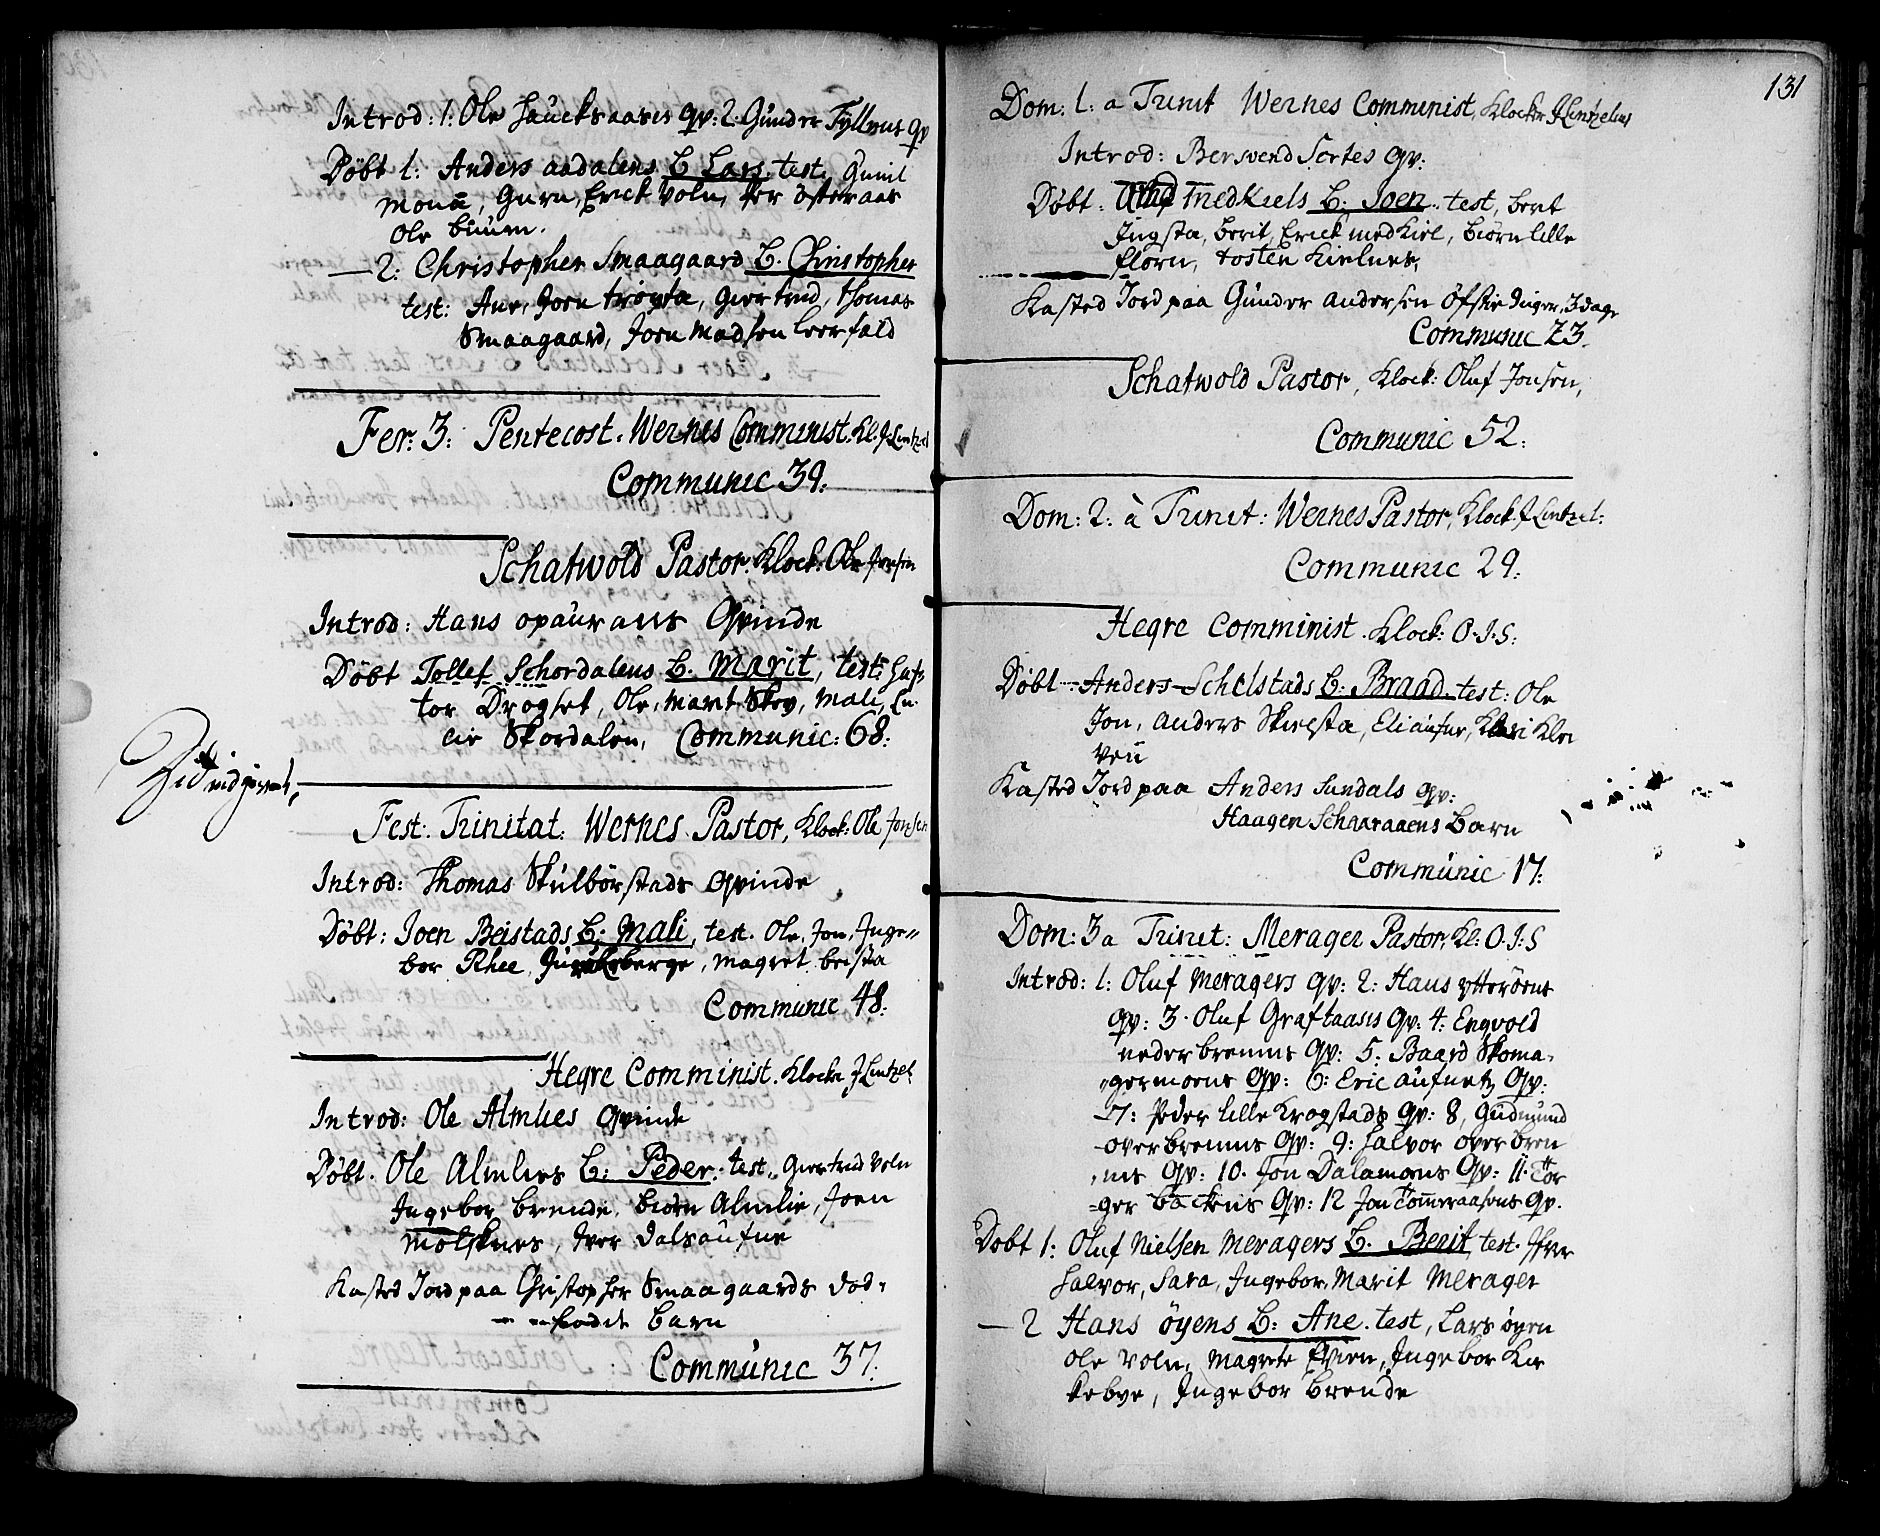 Introd: 1: Ole Hauckaasis qv: 2 Gunder Fyllings qv
Döbt 1: Anders aadalens B Lars test. Gunil
Mona, Guru, Erick Voln, Per österaas
Ole biuun.
—2: Christopher Smaagaard B. Christopher
test: Ane, Joen tröyta, Giertrud, thomas
Smaagaard, Joen Madsen leerfald
Fer: 3: Pentecost. Wernes Comminist. Kl. J Lintzel
Communic 39:
Schatwold Pastor. Klock: Ole Jonsen
Introd: Hans opaurans Qvinde
Döbt Tollef Schordalens B. Marit, test: Haf-
tor Drogset, Ole, Marit Skey, Mali, En
cie Skordalen, Communic: 68:
Fest: Trinitat: Wernes Pastor, Klock: Ole Jonsen
Introd: Thomas Skulbörstads Qvinde
Döbt: Joen Beistads B: Mali, test. Ole, Jon, Inge=
bor Rhee, berge, Magret beista
Communic 48:
Hegre Comminist. Klocke J Lintzel
Introd: Ole Almlies Qvinde
Döbt. Ole Almlies B: Peder. test, Giertrud Voln
Ingebor brende, biörn Almlie, Joen
Molsknes, Iver dalsaufne
Kasted Jord paa Christopher Smaagaards död-
födde barn
Communic 37:
131
Dom: 1: a Trinit Wernes Comminist, Klocker J Lintzelius
Introd: Bersvend Sertes qv:
Döbt: Medkiels B. Joen. test, berit
Ingsta, berit, Erick medkiel, biörn lille
florn, tosten kielnes,
Kasted Jord paa Gunder andersen öfstie 3 dage
Communic 23.
Schatwold Pastor, Klock: Oluf Jonsen,
Communic 52:
Dom: 2: à Trinit: Wernes Pastor, Klock J Lintzel:
Communic 29:
Hegre Comminist. Klock: O. J. S:
Döbt. Anders Schelstads B: Braad test: Ole
Jon, anders Skielsta, Eli aufne, Kari Kle
ven
Kasted Jord paa Anders Sundals qv:
Haagen Schaaraaens Barn
Communic 17:
Dom: 3 a Trinit: Merager Pastor, Kl: O. J: S
Introd: 1: Oluf Meragers qv: 2: Hans ytteröens
qv: 3. Oluf Graftaasis qv: 4: Engvold
nederbremns qv: 5: Baard Skoma-
germoens qv: 6: Eric aufnetz qv:
—7: Peder lille Krogstads qv: 8, Gudmund
overbremns qv: 9: Halvor overbrem
ns qv: 10. Jon Dalamoens qv: 11. Tor
=ger backens qv: 12 Jon Tömeraasens qv.
Döbt 1: Oluf Nielsen Meragers B. Berit test. Iver
Halvor, Sara, Ingebor, Marit Merager
—2 Hans öyens B: Ane. test, Lars öyen
Ole Voln, Magrete Evien, Ingebor Kir
kebye, Ingebor brende